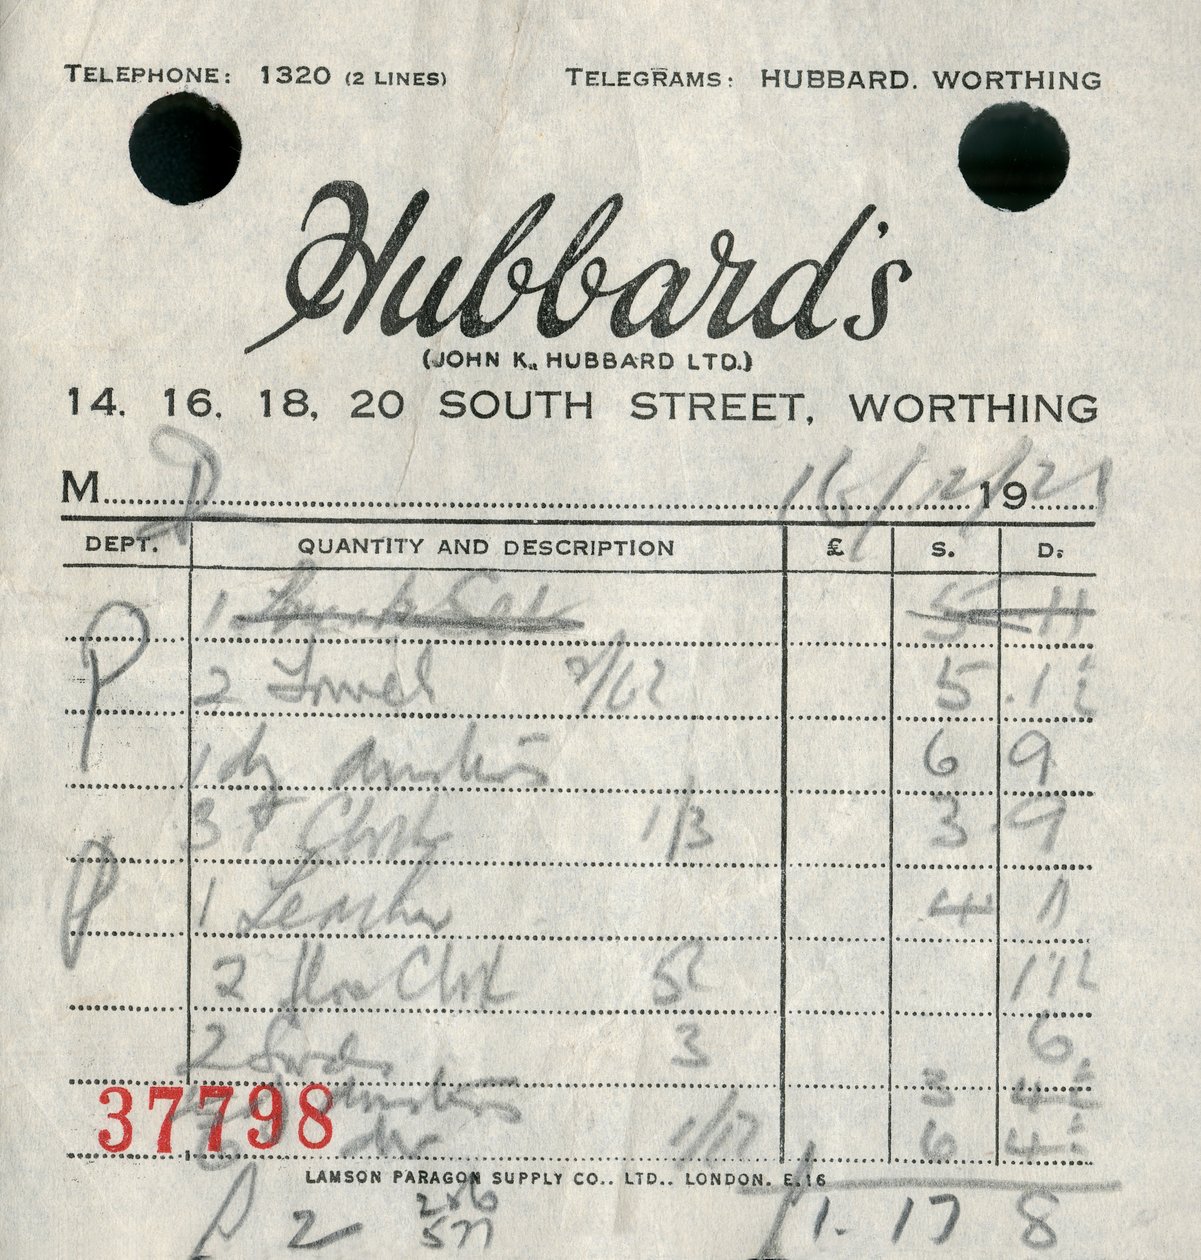 TELEPHONE: 1320 (2 LINES) TELEGRAMS: HUBBARD. WORTHING
Hubbard's
(JOHN K. HUBBARD LTD.)
14, 16, 18, 20 SOUTH STREET, WORTHING
M 16/12/ 19
DEPT. QUANTITY AND DESCRIPTION £ S. D.
P 1 5 11
2 Towel 5 . 1½
1 dz dusters 6 9
3 Cloth 1/3 3 9
P 1 Leather 4 11
2 floor Cloth 5½ 11
2 3 6.
dusters 3 4½
37798
6 do 6 4½
LAMSON PARAGON SUPPLY CO., LTD., LONDON. E.16
P 2 £1. 17 8